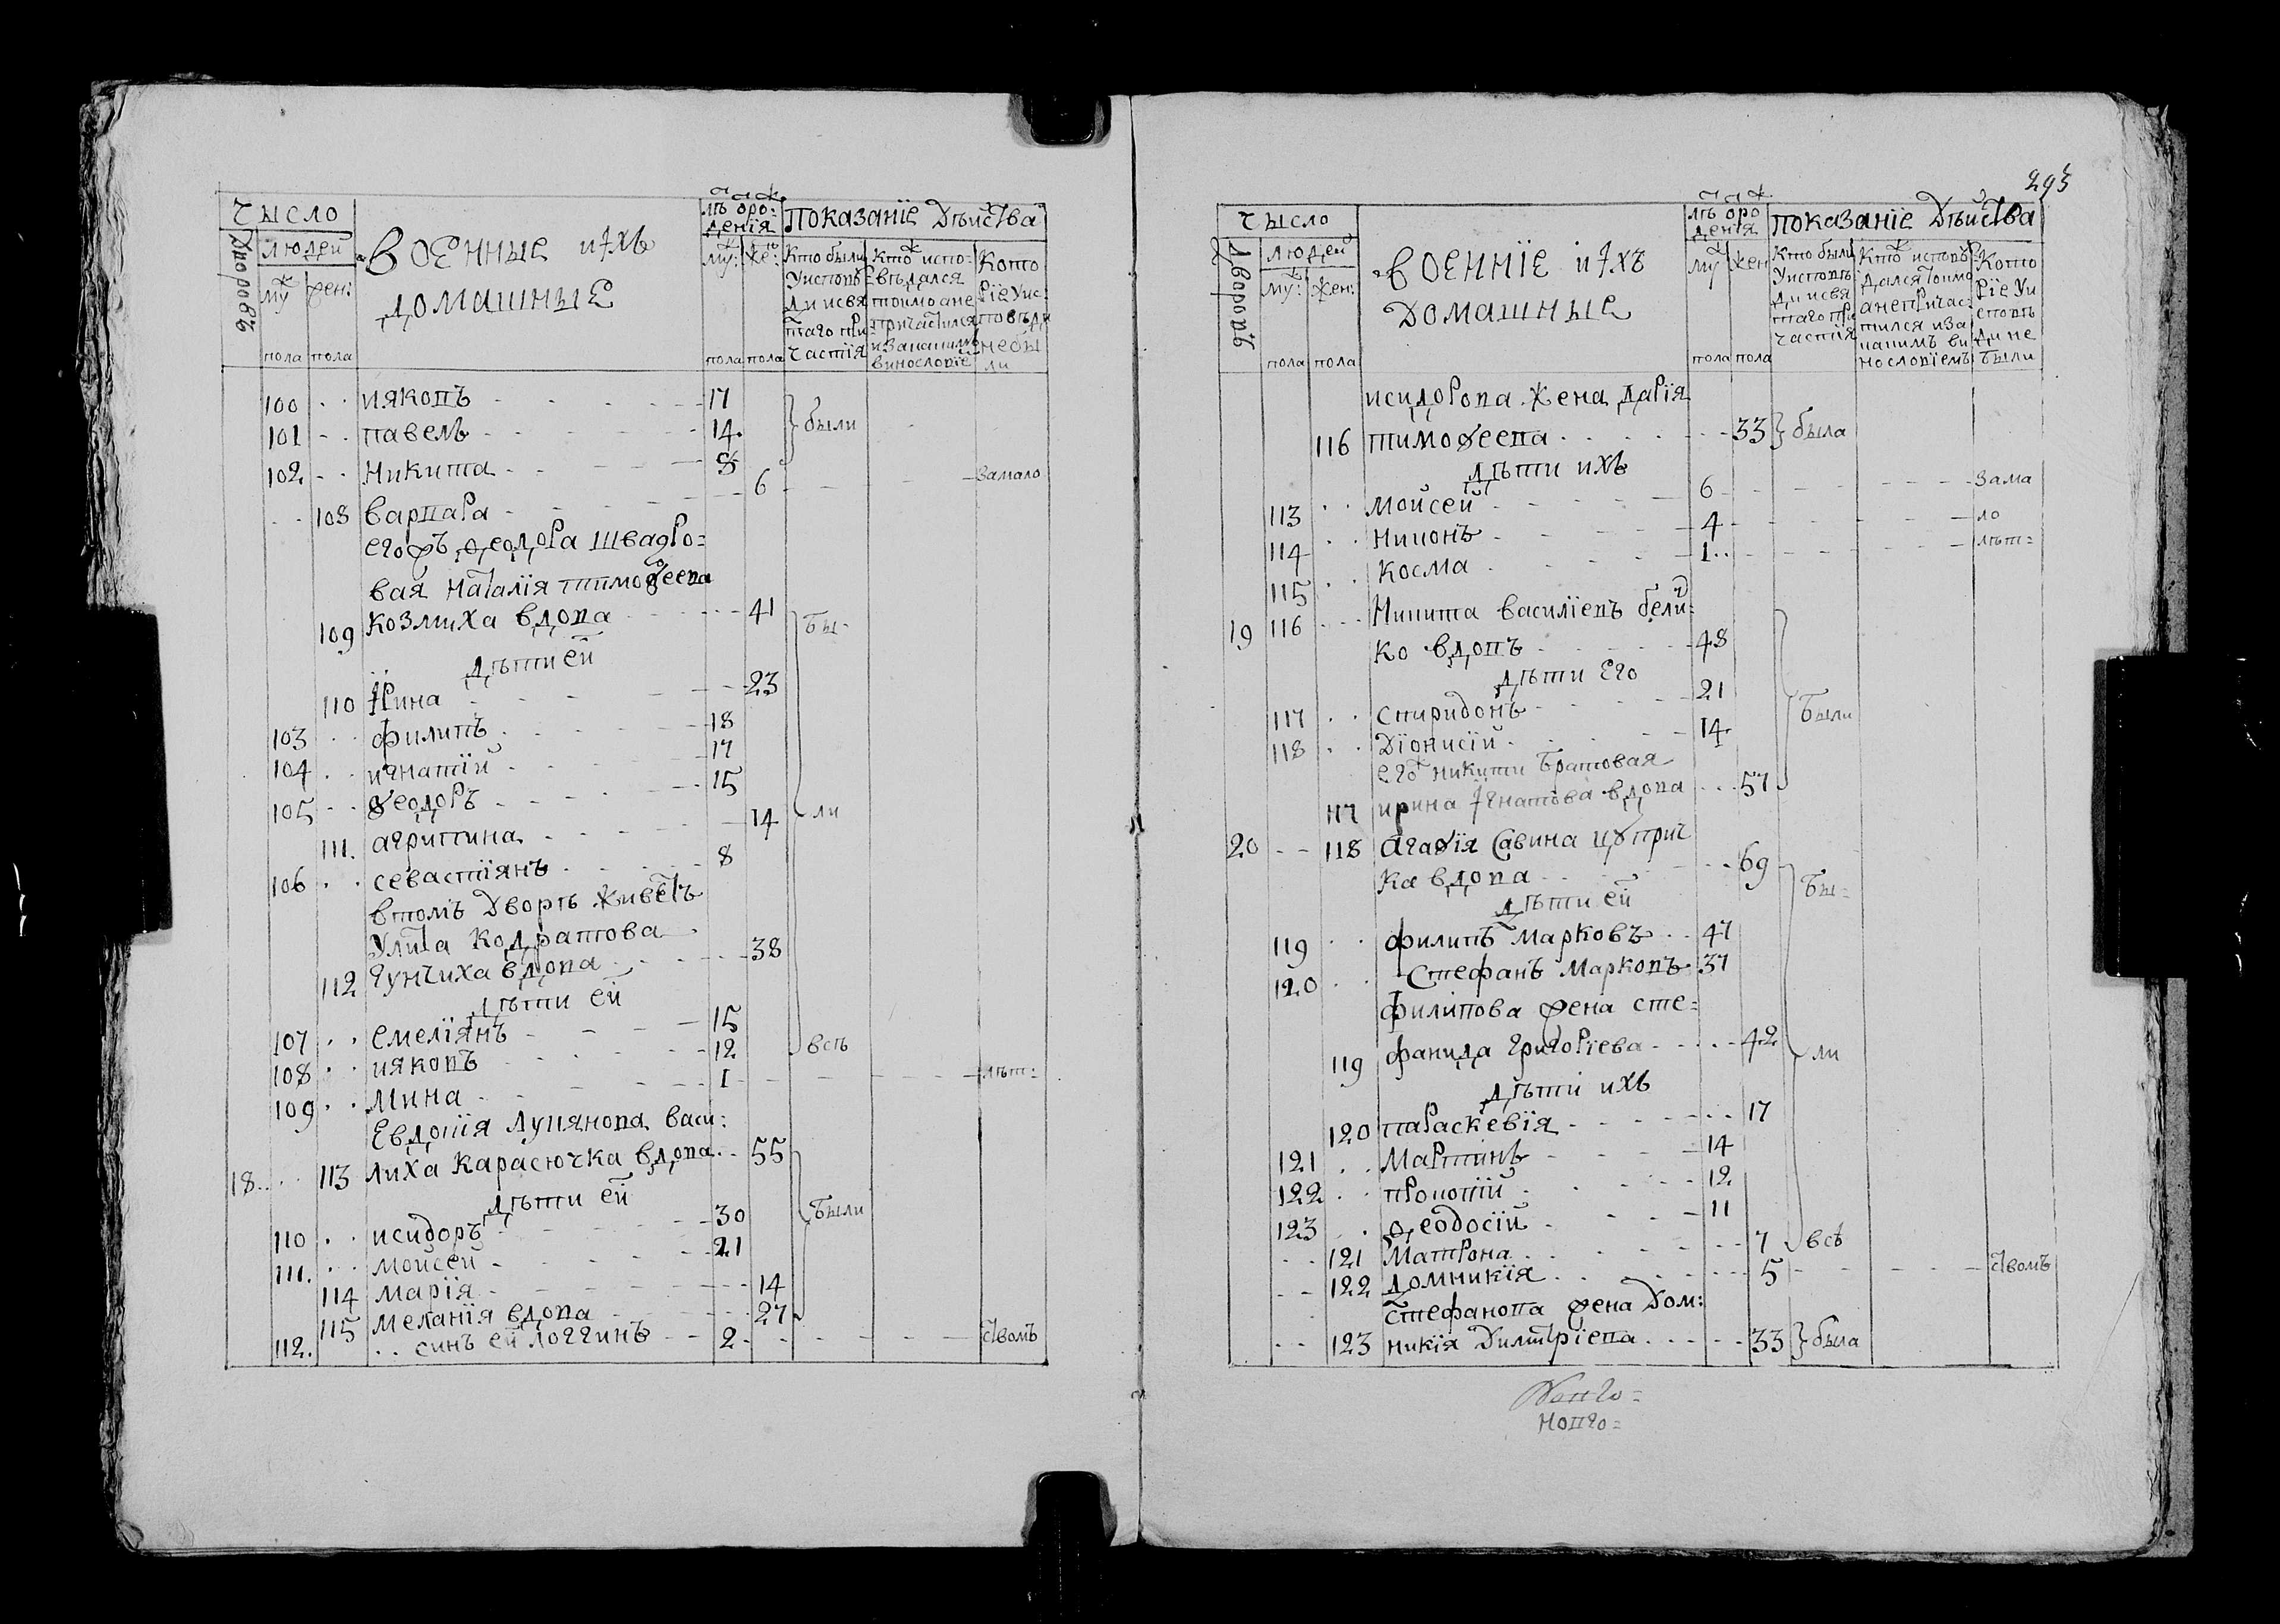 чысло
людей
Дворовъ
му
жен:
пола
пола
военные ихъ
домашные
лѣ оро:
денія
му:
же:
пола
пола
показаніе дѣйства
Кто были
у исповѣ
ди и свя
таго при
частія
Кто испо-
вѣдался
токмо а не
причастился
и за какимъ
винословіе
Кото
ріе у ис:
повѣди
не бы
ли
100 ияковъ 17 } были
101 павелъ 14
102 Никита 8
108 варвара 6 замало
его ѳеодора швадро=
вая наталія тимофеева
109 козмиха вдова 41 бы-
дѣти ей
110 Ірина 23
103 филипъ 18
104 игнатій 17
105 феодоръ 15
111. агрипина 14 ли
106 севастіянъ 8
втомъ дворѣ живетъ
Улита кодратова
112 чунчиха вдова 38
дѣти ей
107 емеліянъ 15
108 ияковъ 12 всѣ
109 мина 1 лѣт=
Евдокія лукянова васи:
18 113 лиха карасючка вдова 55
дѣти ей
110 исидоръ 30 были
111. мойсей 21
114 марія 14
115 меланія вдова 27
112. синъ ей логгинъ 2 ствомъ
чысло
людей
Дворовъ
му:
жен:
пола
пола
военніе ихъ
домашные
лѣ оро
денія
му
жен
пола
пола
показаніе дѣйства
Кто были
у исповѣ
ди и свя
таго при
частія
Кто исповѣ
дался токмо
а не причас:
тился и за
какимъ ви
нословіемъ
Кото
ріе у и
споvѣ
ди не
были
исидорова жена дарія
116 тимофеева 33 } была
дѣти ихъ
113 мойсей 6 зама
114 никонъ 4 ло
115 косма 1 лѣт=
19 116 Никита василіевъ бели:
ко вдовъ 48
дѣти его
117 спиридонъ 21 были
118 діонисій 14
его никити братовая
117 ирина ігнатова вдова 57
20 118 агафія савина цуприч
ка вдова 69 бы=
дѣти ей
119 филипъ марковъ 47
120 Стефанъ марковъ 37
филипова жена сте=
119 фанида григоріева 42 ли
дѣти ихъ
120 параскевія 17
121 мартинъ 14
122 прокопій 12
123 ѳеодосій 11
121 матрона 7 всѣ
122 домникія 5 ствомъ
стефанова жена дом:
123 никія димитріева 33 } была